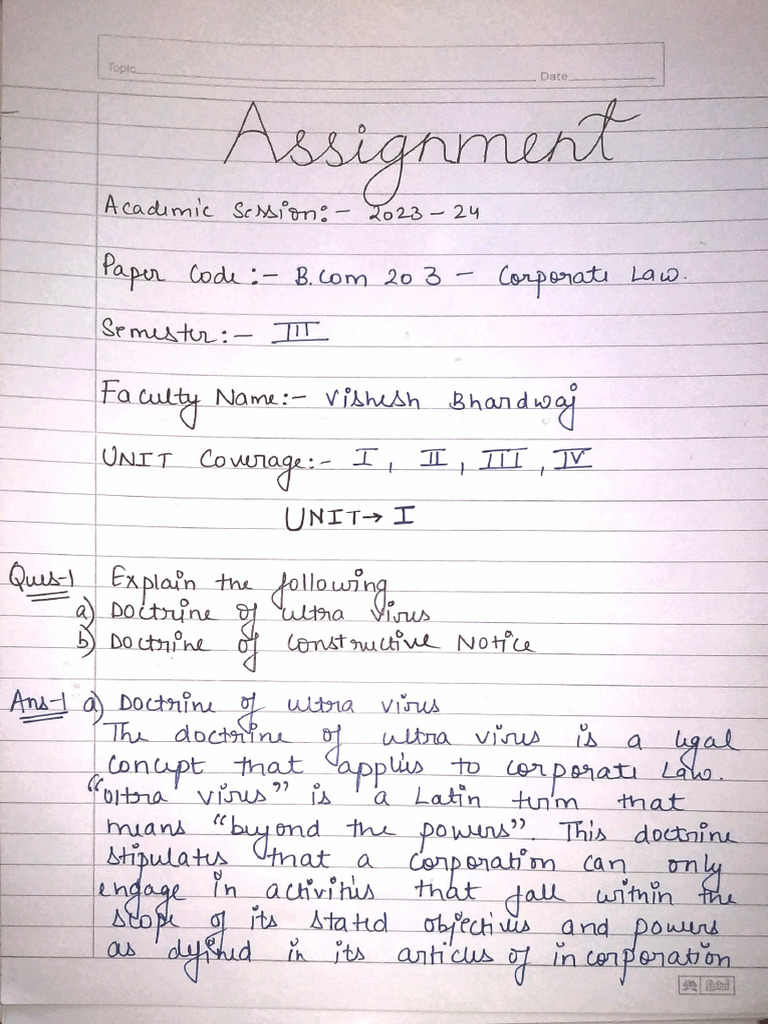 Topic Date
Assignment
Academic Session:- 2023-24
Paper Code:- B.Com 203 - Corporate Law.
Semester:- III
Faculty Name:- Vishesh Bhardwaj
UNIT Coverage:- I, II, III, IV
UNIT→ I
Ques-1 Explain the following
a) Doctrine of ultra virus
b) Doctrine of constructive Notice
Ans-1 a) Doctrine of ultra virus
The doctrine of ultra virus is a legal
concept that applies to corporate Law.
"Ultra virus" is a Latin term that
means "beyond the powers". This doctrine
stipulates that a corporation can only
engage in activities that fall within the
scope of its stated objectives and powers
as defined in its articles of incorporation